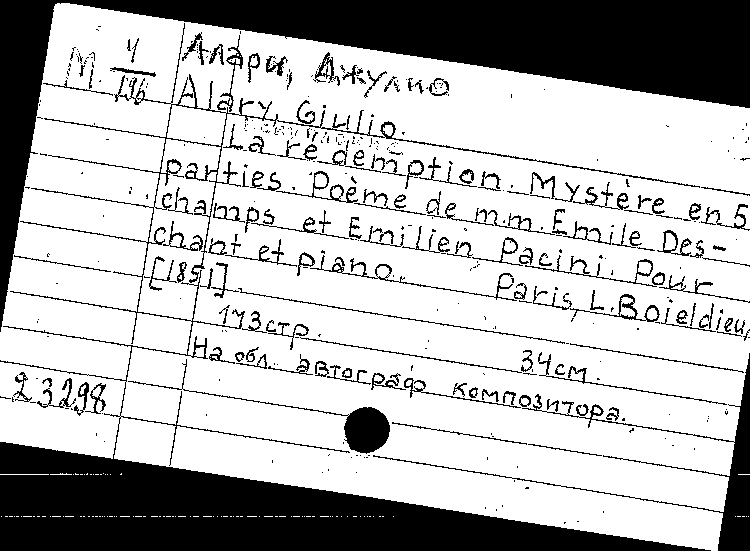 М. 4/196
Алари, Джулио
Alary, Giulio.
La rédemption. Mystère en 5
parties. Poème de m.m. Emile Des-
champs et Emilien Pacini. Pour
chant et piano. Paris, L. Boieldieu,
[1851].
173стр. 34см.
На обл. автограф композитора.
23298